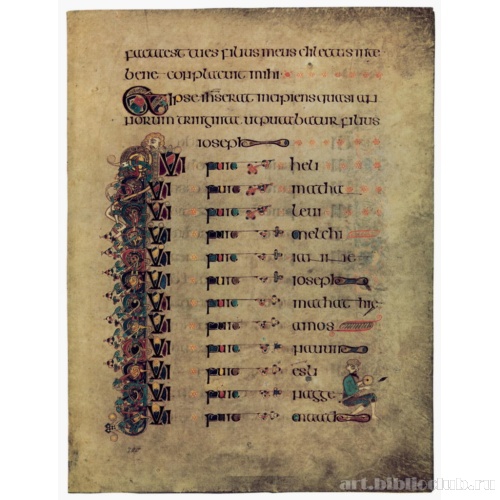 factaest tues filius meus dilectus inte
bene conplacuit mihi
Et ipse ihs erat incipiens quasi an
norum triginta ut putabatur filius
ioseph
QUI fuit heli
QUI fuit matha
QUI fuit leui
QUI fuit melchi
QUI fuit iannae
QUI fuit ioseph
QUI fuit mathathie
QUI fuit amos
QUI fuit nauum
QUI fuit esli
QUI fuit nagge
QUI fuit
art.biblioclub.ru